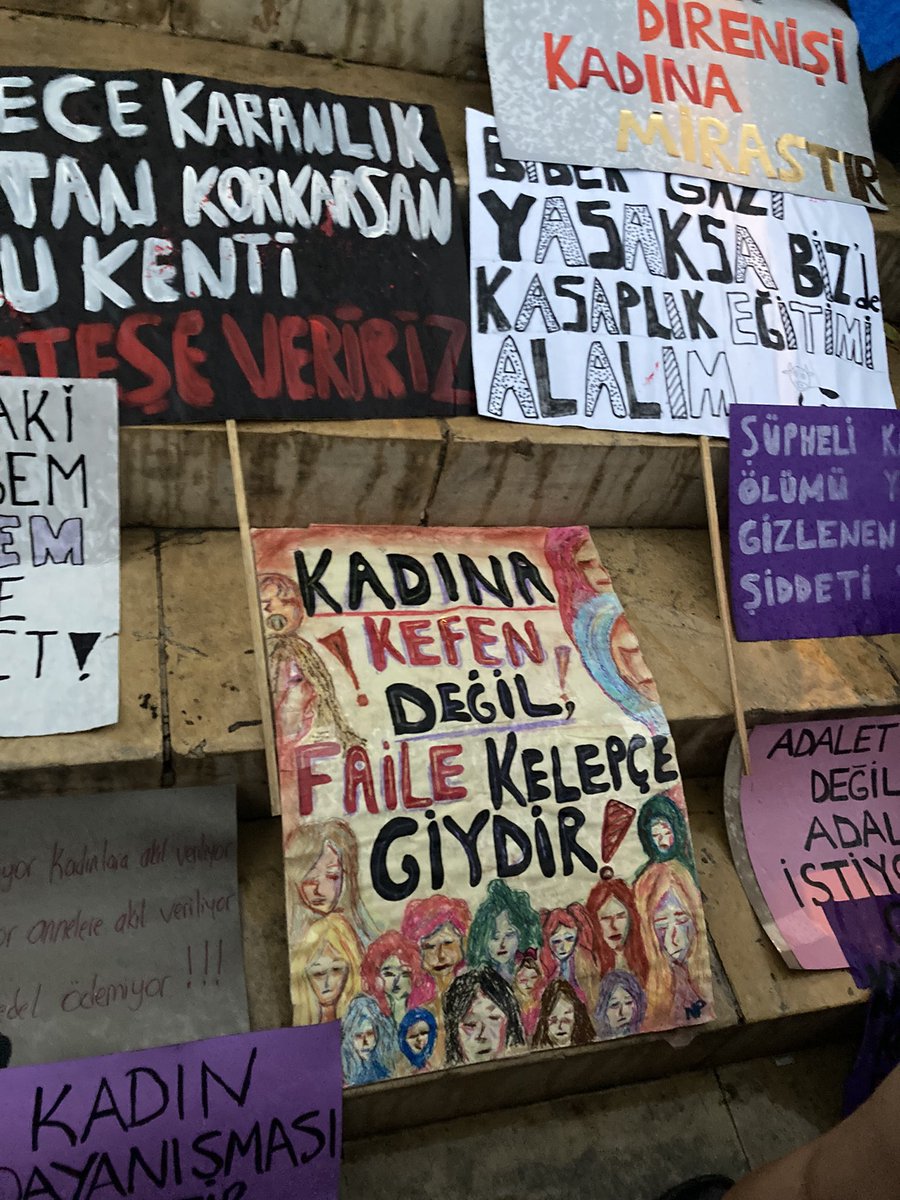 DİRENİŞİ
KADINA
MİRASTIR
ECE KARANLIK
TAN KORKARSAN
U KENTİ
ATEŞE VERİRİZ
BİBER GAZI
YASAKSA BİZ'de
KASAPLIK EĞİTİMİ
ALALIM
AKİ
SEM
EM
E
ET!
ŞÜPHELİ K
ÖLÜMÜ Y
GİZLENEN
ŞİDDETİ
KADINA
! KEFEN !
DEĞİL,
FAİLE KELEPÇE
GİYDİR!
NP
ADALET
DEĞİL
ADAL
İSTİYO
yor Kadınlara akıl veriliyor
or annelere akıl veriliyor
edel ödemiyor !!!
KADIN
DAYANIŞMASI